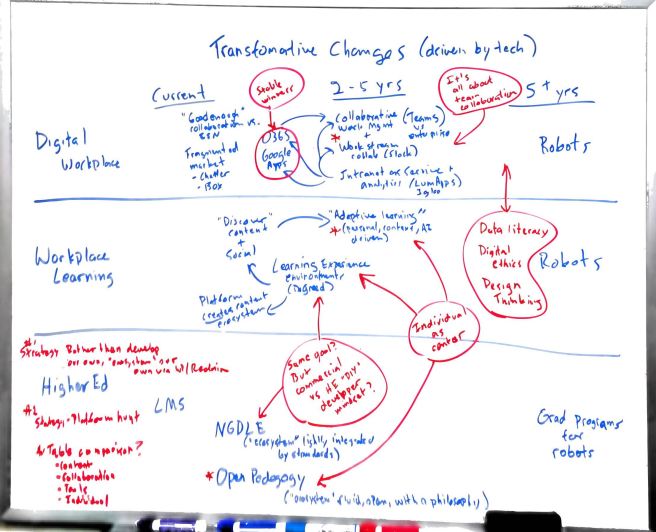 Transfomative Changes (driven by tech)
Current
Stable winners
2-5 yrs
It's
all about
team
collaboration
5+ yrs
Digital
Workplace
"Good enough"
collaboration vs.
Fragmented
market
- Chatter
- Box
O365
Google
Apps
Collaborative (Teams)
Work Mgmt vs
+ enterprise
* Work stream
collab (Slack)
Intranet as service +
analytics (LumApps)
Igloo
Robots
Workplace
Learning
"Discover"
content
+
Social
"Adaptive learning"
* (personal, context, AI
driven)
Learning Experience
environments
(Degreed)
Platform
creates content
ecosystem
Data literacy
Digital
ethics
Design
Thinking
Robots
Individual
as
center
Strategy Rather than develop
our own, "ecosystem" or
own via w/
Higher Ed
LMS
#2
Strategy - Platform hunt
Table comparison?
• Content
• Collaboration
• Tools
• Individual
Same goal?
But
commercial
vs HE "DIY"
developer
mindset?
NGDLE
("ecosystem" tightly integrated
by standards)
* Open Pedagogy
("ecosystem" fluid, open, with a philosophy)
Grad programs
for
robots